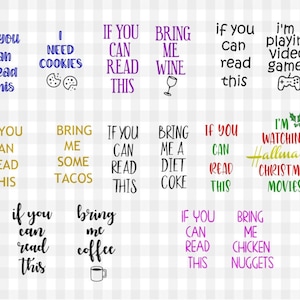 you
an
ad
his
I
NEED
COOKIES
IF YOU
CAN
READ
THIS
BRING
ME
WINE
if you
can
read
this
i'm
playin
video
game
YOU
AN
EAD
THIS
BRING
ME
SOME
TACOS
IF YOU
CAN
READ
THIS
BRING
ME A
DIET
COKE
IF YOU
CAN
READ
THIS
I'M
WATCHING
Hallmar
CHRISTM
MOVIES
if you
can
read
this
bring
me
coffee
IF YOU
CAN
READ
THIS
BRING
ME
CHICKEN
NUGGETS